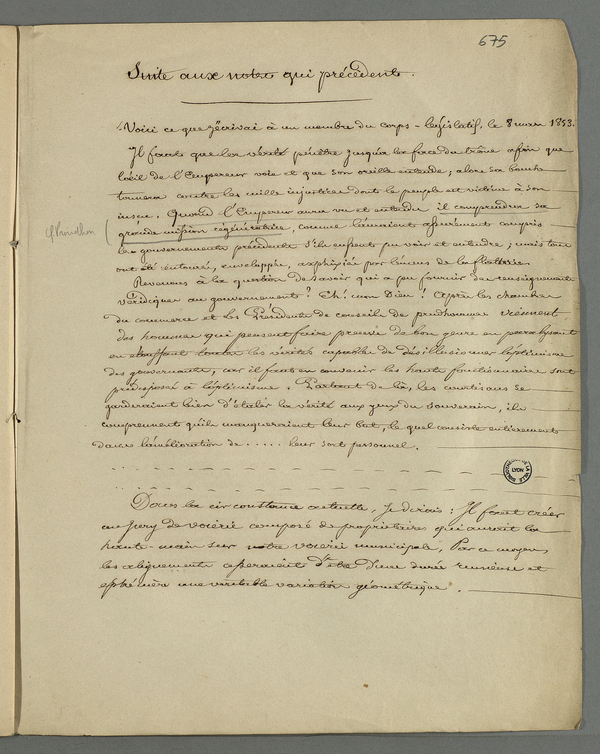 675
Suite aux notes qui précédent.
Voici ce que j'écrivai à un membre du corps-législatif, le 8 mars 1853.
Il faut que la vérité pénètre jusqu'à la face du trône afin que
l'œil de l'Empereur voie et que son oreille entende; alors sa
tonnera contre les mille injustices dont le peuple est victime à son
insçu. Quand l'Empereur aura vu et entendu il comprendra sa
cf Proudhon
grande mission régénératrice, comme l'auraient assurément compris
les gouvernements précédents s'ils eussent pu voir et entendre; mais tous
ont été entourés, enveloppés, asphixiés par l'encens de la flatterie.
Revenons à la question de savoir qui a pu fournir des renseignements
véridiques au gouvernements? Eh! mon Dieu! Après les chambres
du commerce et les Présidents de conseils de prudhommes viennent
des hommes qui pensent faire preuve de bon genre en paralysant
en étouffant toutes les vérités capables de désillusionner l'optimisme
des gouvernants, car il faut en convenir les hauts fonctionnaires sont
prédisposés à l'optimisme. Partant de là, les courtisans se
garderaient bien d'étaler la vérité aux yeux du souverain, ils
comprennent qu'ils manqueraient leur but, le quel consiste entièrement
dans l'amélioration de ..... leur sort personnel.
BIBLIOTHEQUE DE LA VILLE LYON
Dans la circonstance actuelle, je dirais: Il faut créer
un jury de voierie composé de propriétaires qui aurait la
haute-main sur notre voierie municipale, Par ce moyen,
les alignements d'être d'une durée ruineuse et
éphémère une véritable variation géométrique.